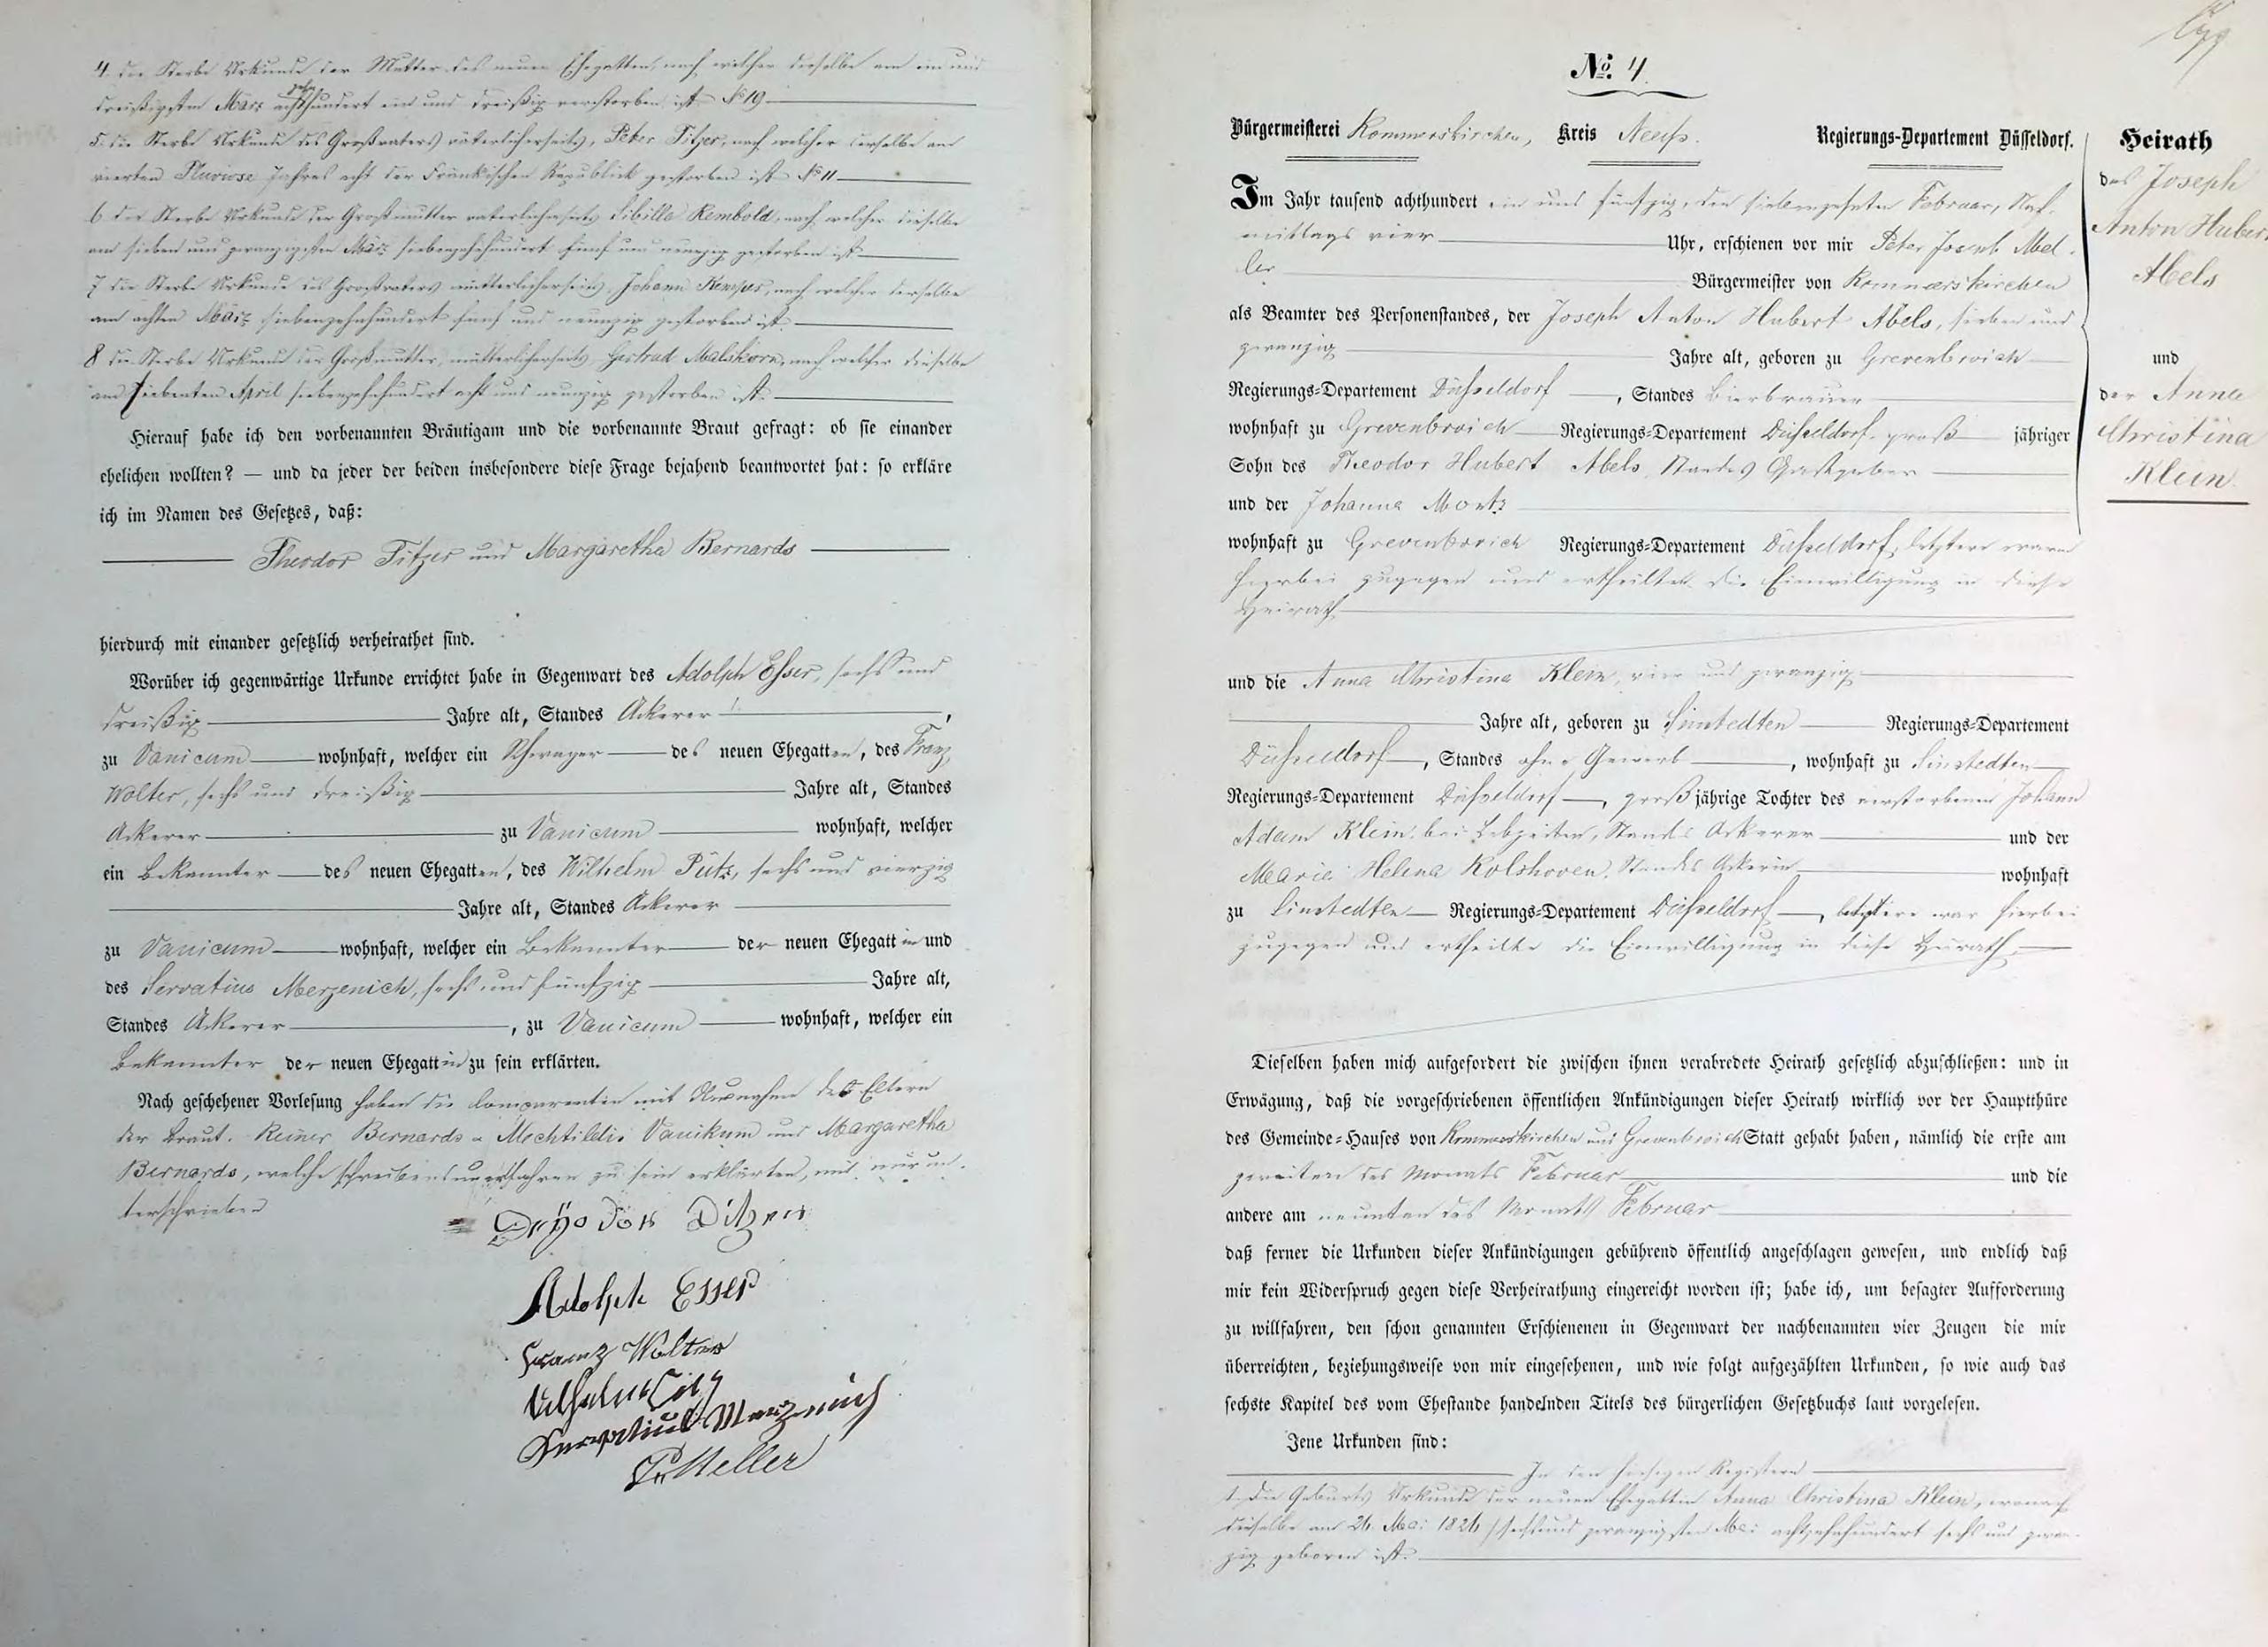 4. die Sterbe Urkunde der Mutter des neuen Ehegatten, nach welcher dieselbe am ein und
dreißigsten März achtzehnhundert ein und dreißig verstorben ist. No 19
5. die Sterbe Urkunde des Großvaters väterlicherseits, Peter Titzer, nach welcher derselbe am
vierten Pluviose Jahres acht der Fränkischen Republick gestorben ist. No 11
6 die Sterbe Urkunde der Großmutter väterlicherseits Sibilla Rembold, nach welcher dieselbe
am sieben und zwanzigsten März siebenzehnhundert fünf und neunzig gestorben ist
7 die Sterbe Urkunde des Großvaters mütterlicherseits, Johann Kemper, nach welcher derselbe
am achten März siebenzehnhundert fünf und neunzig gestorben ist.
8 die Sterbe Urkunde der Großmutter, mütterlicherseits, Gertrud Malskorn, nach welcher dieselbe
am siebenten April siebenzehnhundert acht und neunzig gestorben ist.
Hierauf habe ich den vorbenannten Bräutigam und die vorbenannte Braut gefragt: ob sie einander
ehelichen wollten? — und da jeder der beiden insbesondere diese Frage bejahend beantwortet hat: so erkläre
ich im Namen des Gesetzes, daß:
Theodor Titzer und Margaretha Bernards
hierdurch mit einander gesetzlich verheirathet sind.
Worüber ich gegenwärtige Urkunde errichtet habe in Gegenwart des Adolph Esser, sechs und
dreißig Jahre alt, Standes Ackerer,
zu Vanicum wohnhaft, welcher ein Schwager des neuen Ehegatten, des Franz
Wolter, sechs und dreißig Jahre alt, Standes
Ackerer zu Vanicum wohnhaft, welcher
ein Bekannter des neuen Ehegatten, des Wilhelm Pütz, sechs und vierzig
Jahre alt, Standes Ackerer
zu Vanicum wohnhaft, welcher ein Bekannter der neuen Ehegattin und
des Servatius Merzenich, sechs und fünfzig Jahre alt,
Standes Ackerer, zu Vanicum wohnhaft, welcher ein
Bekannter der neuen Ehegattin zu sein erklärten.
Nach geschehener Vorlesung haben die Comparenten mit Ausnahme der Eltern
der Braut. Reiner Bernards u Mechtildis Vanikum und Margaretha
Bernards, welche schreibensunerfahren zu sein erklärten, mit mir un-
terschrieben
Theodor Titzer
Adolph Esser
Franz Wolter
Wilhelm Pütz
Servatius Merzenich
Meller
No. 4
Bürgermeisterei Rommerskirchen, Kreis Neuß. Regierungs-Departement Düsseldorf.
Im Jahr tausend achthundert ein und fünfzig, den siebenzehnten Februar, Nach-
mittags vier Uhr, erschienen vor mir Peter Joseph Mel-
ler Bürgermeister von Rommerskirchen
als Beamter des Personenstandes, der Joseph Anton Hubert Abels, sieben und
zwanzig Jahre alt, geboren zu Grevenbroich
Regierungs-Departement Düsseldorf, Standes Bierbrauer
wohnhaft zu Grevenbroich Regierungs-Departement Düsseldorf, großjähriger
Sohn des Theodor Hubert Abels, Standes Gastgeber
und der Johanna Montz
wohnhaft zu Grevenbroich Regierungs-Departement Düsseldorf, letztere waren
hierbei zugegen und ertheilten die Einwilligung in diese
Heirath
und die Anna Christina Klein, vier und zwanzig
Jahre alt, geboren zu Sinstedten Regierungs-Departement
Düsseldorf, Standes ohne Gewerb, wohnhaft zu Sinstedten
Regierungs-Departement Düsseldorf, großjährige Tochter des verstorbenen Johann
Adam Klein, bei Lebzeiten, Standes Ackerer und der
Maria Helena Kolshoven, Standes Ackerin wohnhaft
zu Sinstedten Regierungs-Departement Düsseldorf, letztere war hierbei
zugegen und ertheilte die Einwilligung in diese Heirath.
Dieselben haben mich aufgefordert die zwischen ihnen verabredete Heirath gesetzlich abzuschließen: und in
Erwägung, daß die vorgeschriebenen öffentlichen Ankündigungen dieser Heirath wirklich vor der Hauptthüre
des Gemeinde-Hauses von Rommerskirchen und Grevenbroich Statt gehabt haben, nämlich die erste am
zweiten des Monats Februar und die
andere am neunten des Monats Februar
daß ferner die Urkunden dieser Ankündigungen gebührend öffentlich angeschlagen gewesen, und endlich daß
mir kein Widerspruch gegen diese Verheirathung eingereicht worden ist; habe ich, um besagter Aufforderung
zu willfahren, den schon genannten Erschienenen in Gegenwart der nachbenannten vier Zeugen die mir
überreichten, beziehungsweise von mir eingesehenen, und wie folgt aufgezählten Urkunden, so wie auch das
sechste Kapitel des vom Ehestande handelnden Titels des bürgerlichen Gesetzbuchs laut vorgelesen.
Jene Urkunden sind:
In den hiesigen Registern
1. Die Geburts Urkunde der neuen Ehegattin Anna Christina Klein, wonach
dieselbe am 26. Mai 1826 / sechsund zwanzigsten Mai achtzehnhundert sechs und zwan-
zig geboren ist.
Heirath
des Joseph
Anton Hubert
Abels
und
der Anna
Christina
Klein